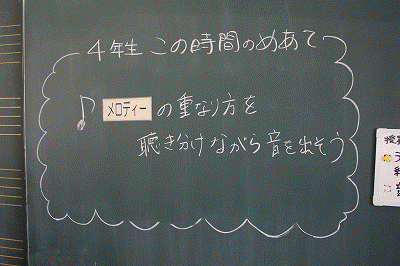 4年生 この時間のめあて
♪ メロディーの重なり方を
聴き分けながら音を出そう